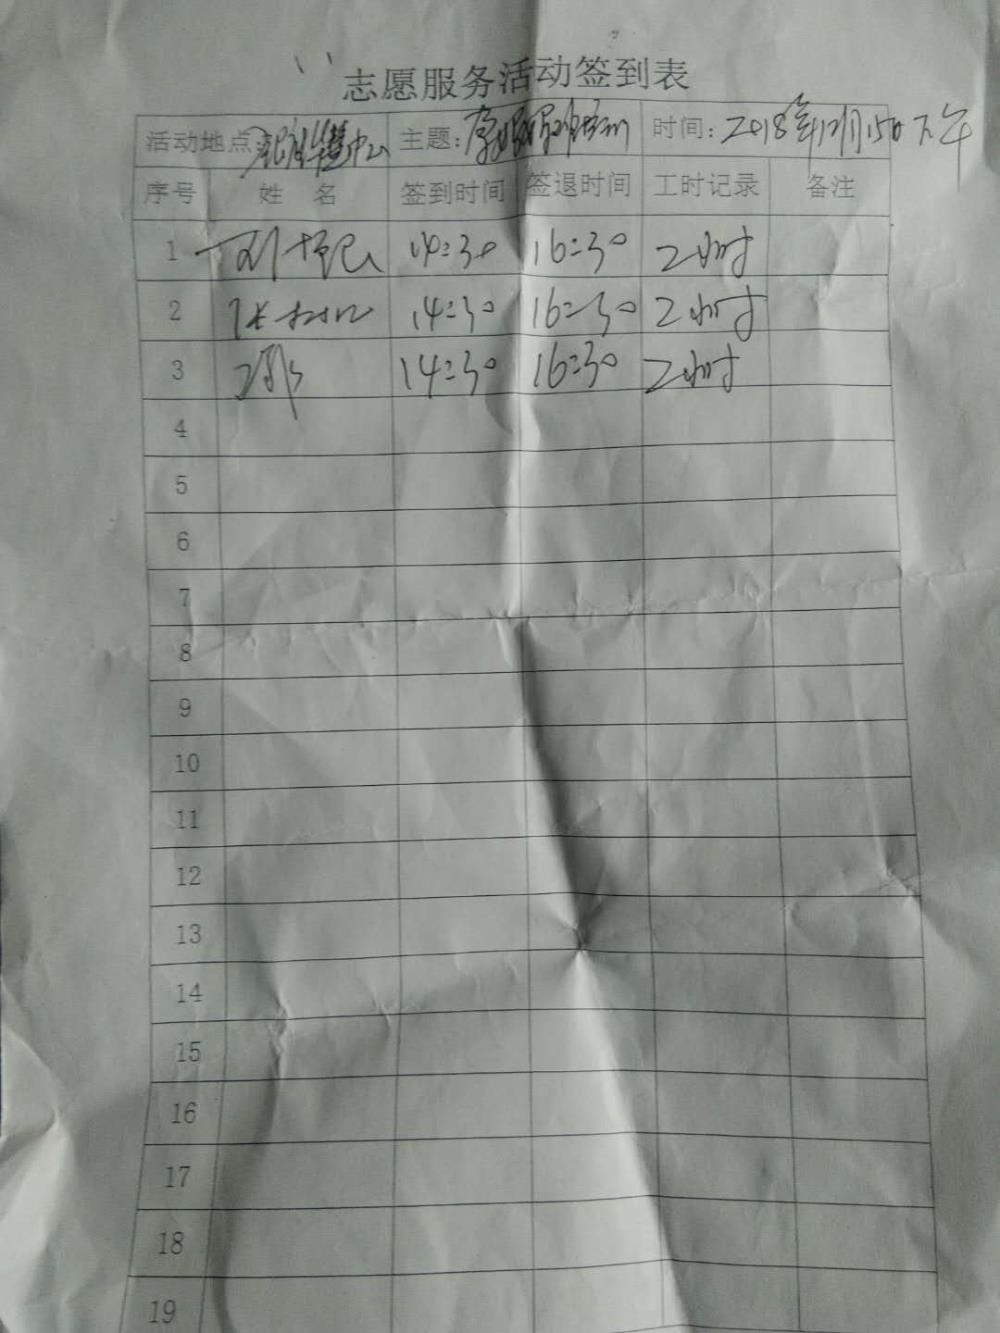 志愿服务活动签到表
活动地点: 中心 主题: 培训 时间: 2018年12月15日下午
序号 姓 名 签到时间 签退时间 工时记录 备注
1 14:30 16:30 2小时
2 14:30 16:30 2小时
3 14:30 16:30 2小时
4
5
6
7
8
9
10
11
12
13
14
15
16
17
18
19